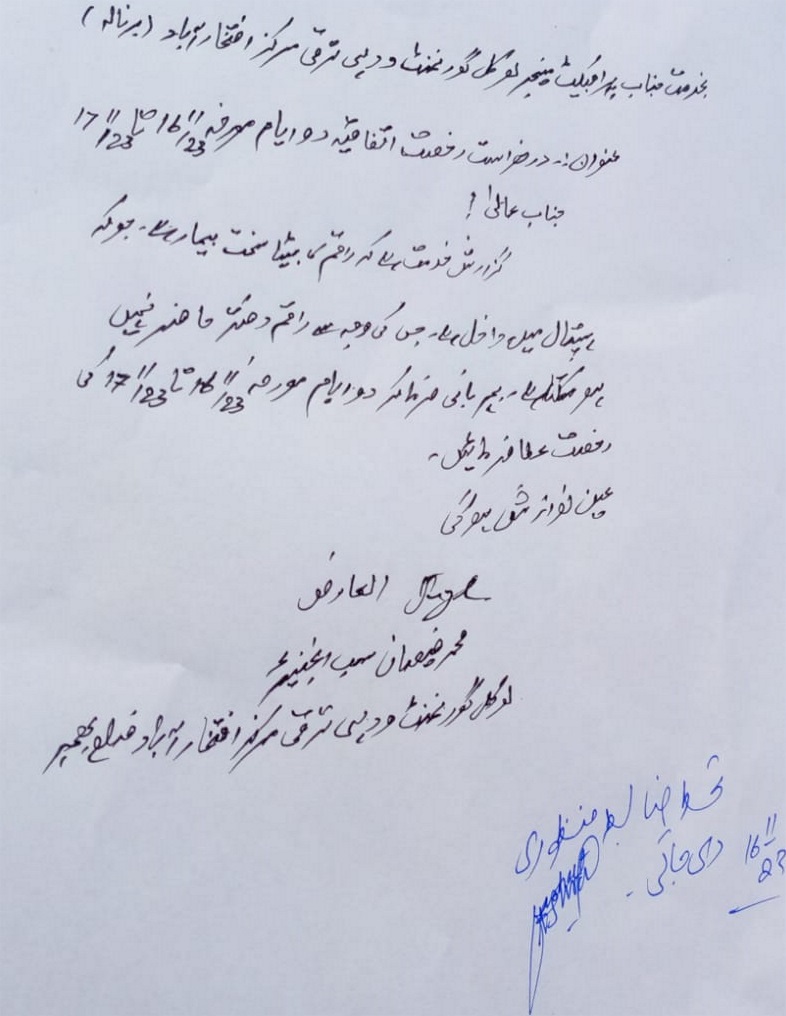 بخدمت جناب پراجیکٹ مینجر لوکل گورنمنٹ و دیہی ترقی مرکز افتخار آباد (برنالہ)
عنوان:۔ درخواست رخصت اتفاقیہ دو ایام مورخہ 16/11/23 تا 17/11/23
جناب عالی!
گزارش خدمت ہے کہ راقم کا بیٹا سخت بیمار ہے۔ جو کہ
ہسپتال میں داخل ہے۔ جس کی وجہ سے راقم دفتر حاضر نہیں
ہو سکتا ہے۔ مہربانی فرما کر دو ایام مورخہ 16/11/23 تا 17/11/23 کی
رخصت عطا فرمائیں۔
عین نوازش ہو گی
العارض
محمد سب انجینئر
لوکل گورنمنٹ و دیہی ترقی مرکز افتخار آباد ضلع بھمبر
ضابطہ منظوری
دی جاتی۔ 16/11/23